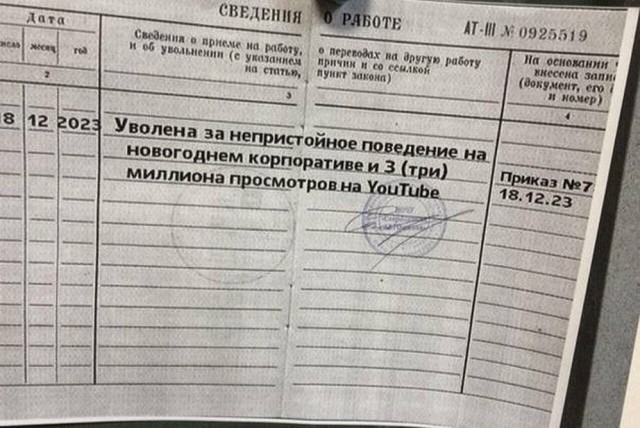 СВЕДЕНИЯ О РАБОТЕ
АТ-III № 0925519
Дата
месяц год
2
Сведения о приеме на работу,
и об увольнении (с указанием
на статью,
3
о переводах на другую работу
причин и со ссылкой
пункт закона)
На основании
внесена
(документ, его
и номер)
4
8 12 2023
Уволена за непристойное поведение на
новогоднем корпоративе и 3 (три)
миллиона просмотров на YouTube
Приказ №7
18.12.23